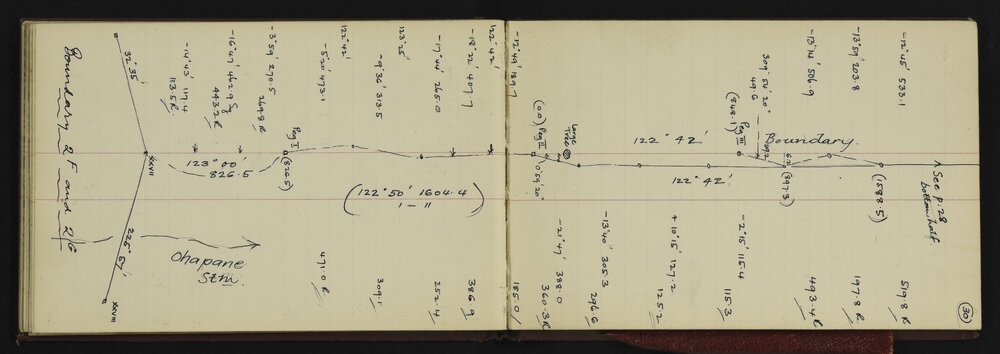 Boundary 2 F and 2 G
32° 35'
XXVII
225° 57'
XXVIII
-14° 43' 117.4
113.5 R.
-16° 47' 462.9 Sg
443.2 R
-3° 59' 270.5
264.8 R
123° 00'
826.5
Peg I
(826.5)
Ohapane
Stm.
-5° 20' 473.1
471.0 R
122° 42'
-9° 36' 313.5
309.1
123° 25'
-17° 44' 265.0
252.4
-18° 22' 407.7
386.9
122° 42'
(122° 50' 1604.4
I - II)
-12° 49' 189.7
185.0
(00) Peg II
0° 59' 20"
Large
Tree
-21° 47' 388.0
360.3 R
-13° 40' 305.3
296.6
122° 42'
122° 42'
+10° 15' 127.2
125.2
-2° 15' 115.4
115.3
Peg III
(848.1)
309° 54' 20"
49.6
Boundary.
(897.3)
-13° 14' 506.9
493.4 R
-13° 59' 203.8
197.8 R
(1588.5)
-12° 45' 533.1
519.8 R
See p. 28
bottom half
30